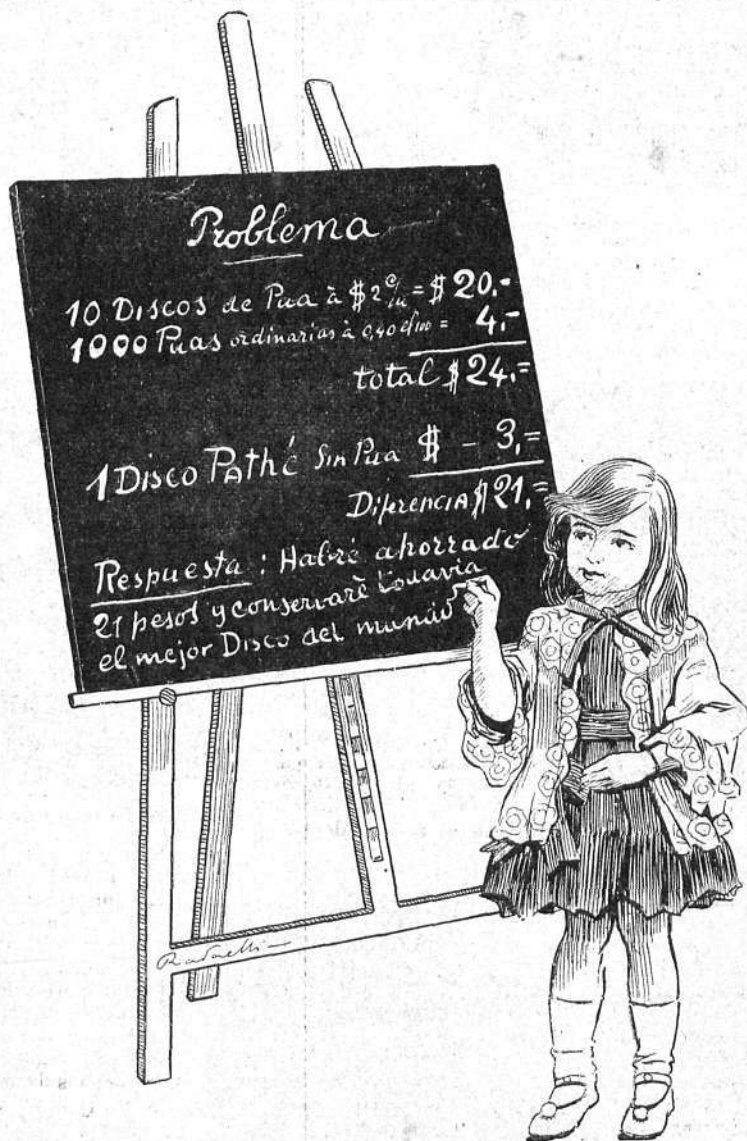 Problema
10 Discos de Pua à $2 c/u = $ 20.-
1000 Puas ordinarias à 0,40 c/100 = 4.-
total $ 24.=
1 Disco Pathé Sin Pua $ - 3.=
Diferencia $ 21.=
Respuesta: Habré ahorrado
21 pesos y conservaré todavia
el mejor Disco del mundo